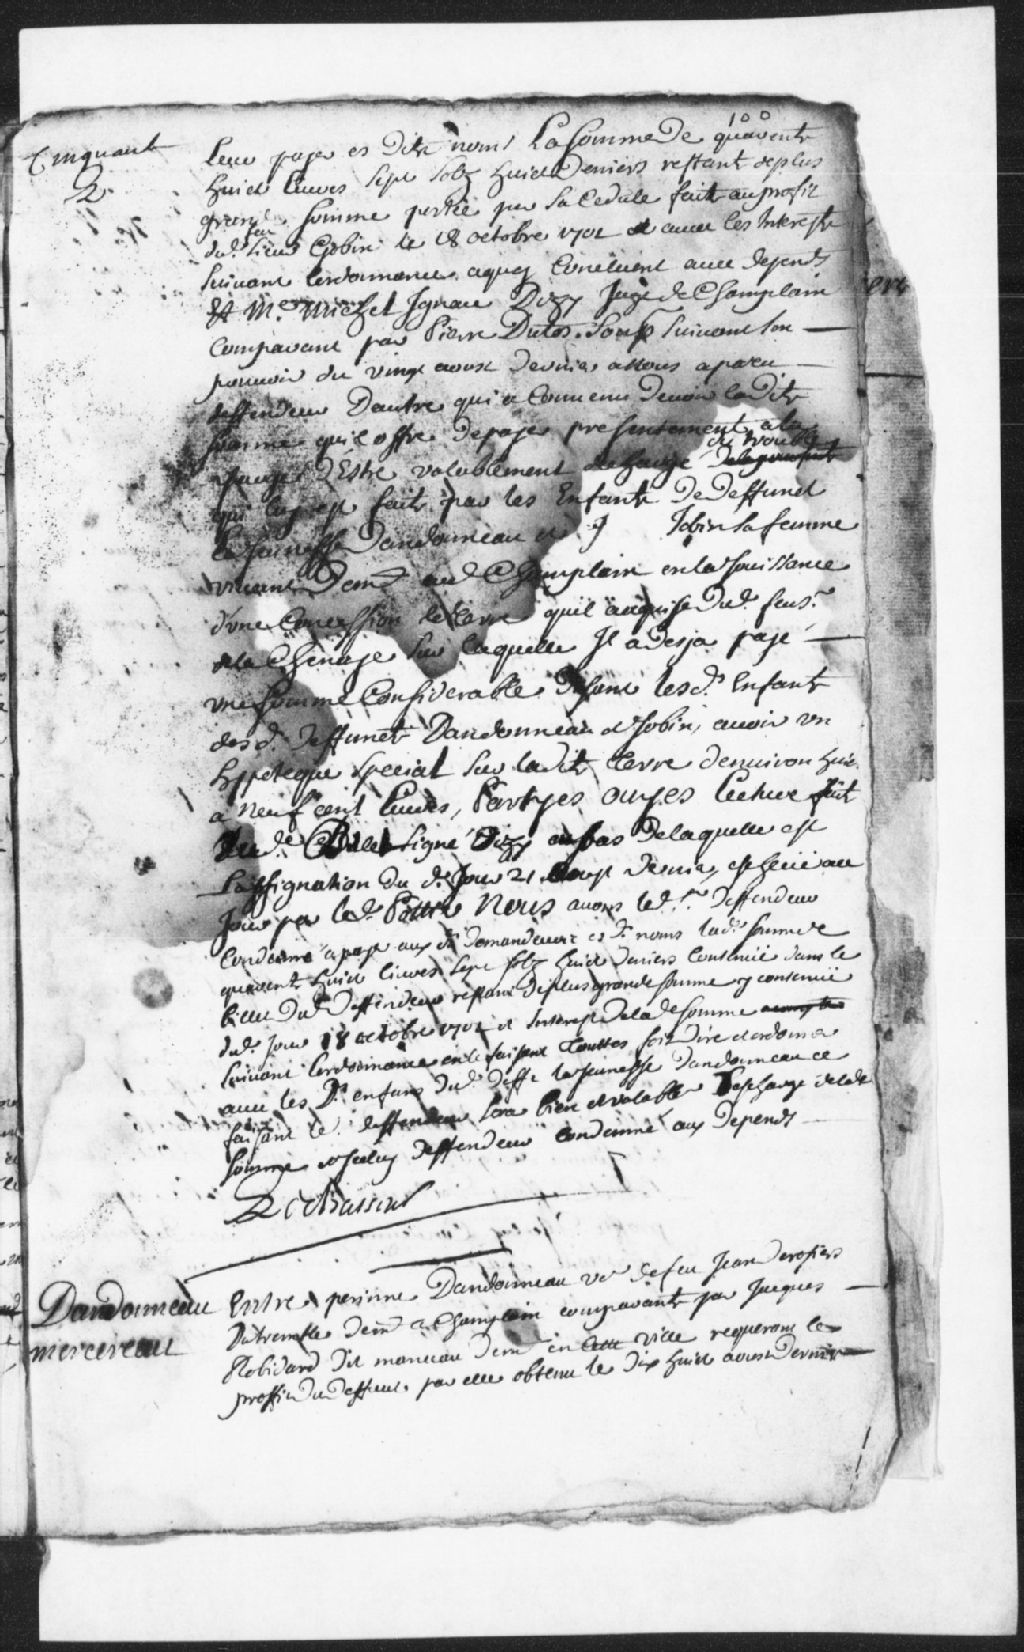 100
Cinquant
2
Leur payer es dits noms La somme de quarente
huict livres sept solz huict Deniers restant de plus
grande somme portée par sa Cedule faite au profit
dud. sieur Gobin le 18 octobre 1702 et avec les Interests
suivant lordonnance aquoy Concluent avec depends
Et Me. Michel Ignace Dizy Juge de Champlain
Comparant par Pierre Dutos suivant son
pouvoir du vingt aoust dernier a nous aparu
deffendeur Dautre qui a Convenu Devoir la dite
somme quil offre de payer presentement a la
charge D'Estre valablement deschargé du trouble
qui luy est fait par les Enfants De deffunct
la Jeunesse Dandonneau et Jobin sa femme
vivant Demt. aud. Champlain en la Jouissance
d'une Concession de terre quil a aquise dud. feu sr.
de la Chenaye sur laquelle Il a desja payé
une somme Considerable Disant lesd. Enfants
desd. deffunct Dandonneau et Jobin, avoir un
hypoteque special sur la dite terre denviron huit
a neuf cent livres, Partyes ouyes lecture fait
dud. Billet signé Dizy au bas de laquelle est
Lassignation du d. Jour 21 aoust dernier
Jour par led. Nous avons led. sr. deffendeur
Condamné a payer aux d. demandeurs es d. noms lad. somme de
quarente huict livres sept solz huict deniers contenüe dans le
billet dud. deffendeur restant de plus grande somme y contenüe
dud. jour 18 octobre 1702 et Interest de lad. somme
suivant lordonnance
avec les d. enfans dud. deff. la Jeunesse Dandonneau ce
faisant le deffendeur sera bien et valablement deschargé de lad.
somme et Iceluy deffendeur condamné aux depends
Dandonneau
mercereau
Entre perinne Dandonneau ve. de feu Jean Desrosiers
Dutremble demt. a Champlain comparante par Jacques
Robidard dit manceau demt. en cette ville requerant le
proffit du deffaut par elle obtenu le dix huict aoust dernier